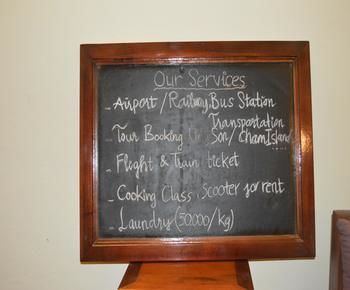 Our Services
- Airport / Railway, Bus Station
Transportation
- Tour Booking Son / Cham Island
- Flight & Train ticket
- Cooking Class, Scooter for rent
- Laundry (50.000/kg)